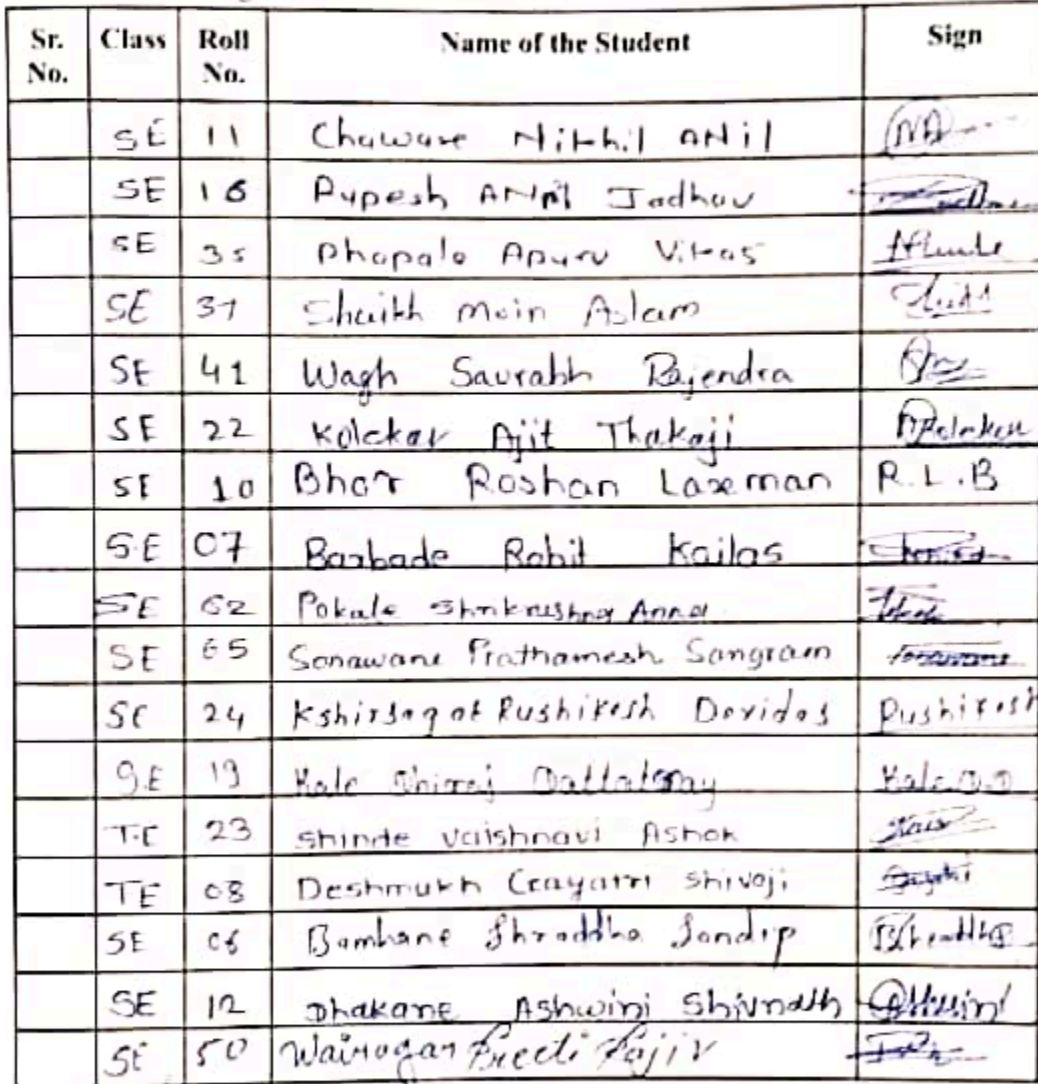 Sr. No. Class Roll No. Name of the Student Sign
SE 11 Chaware Nikhil ANil
SE 16 Rupesh ANil Jadhav
SE 35 Dhapale Apurv Vikas
SE 37 Shaikh Moin Aslam
SE 41 Wagh Saurabh Rajendra
SE 22 Kolekar Ajit Thakaji
SE 10 Bhor Roshan Laxman R.L.B
S.E 07 Barbade Rohit Kailas
SE 62 Pokale Shrikrushna Anna
SE 65 Sonawane Prathamesh Sangram
SE 24 Kshirsagar Rushikesh Devidas Rushikesh
S.E 19 Kale Dhiraj Dattatray Kale D.D
T.E 23 Shinde Vaishnavi Ashok
TE 08 Deshmukh Gayatri Shivaji
SE 06 Bamhane Shraddha Sandip
SE 12 Dhakane Ashwini Shivnath
SE 50 Wairagar Preeti Rajiv